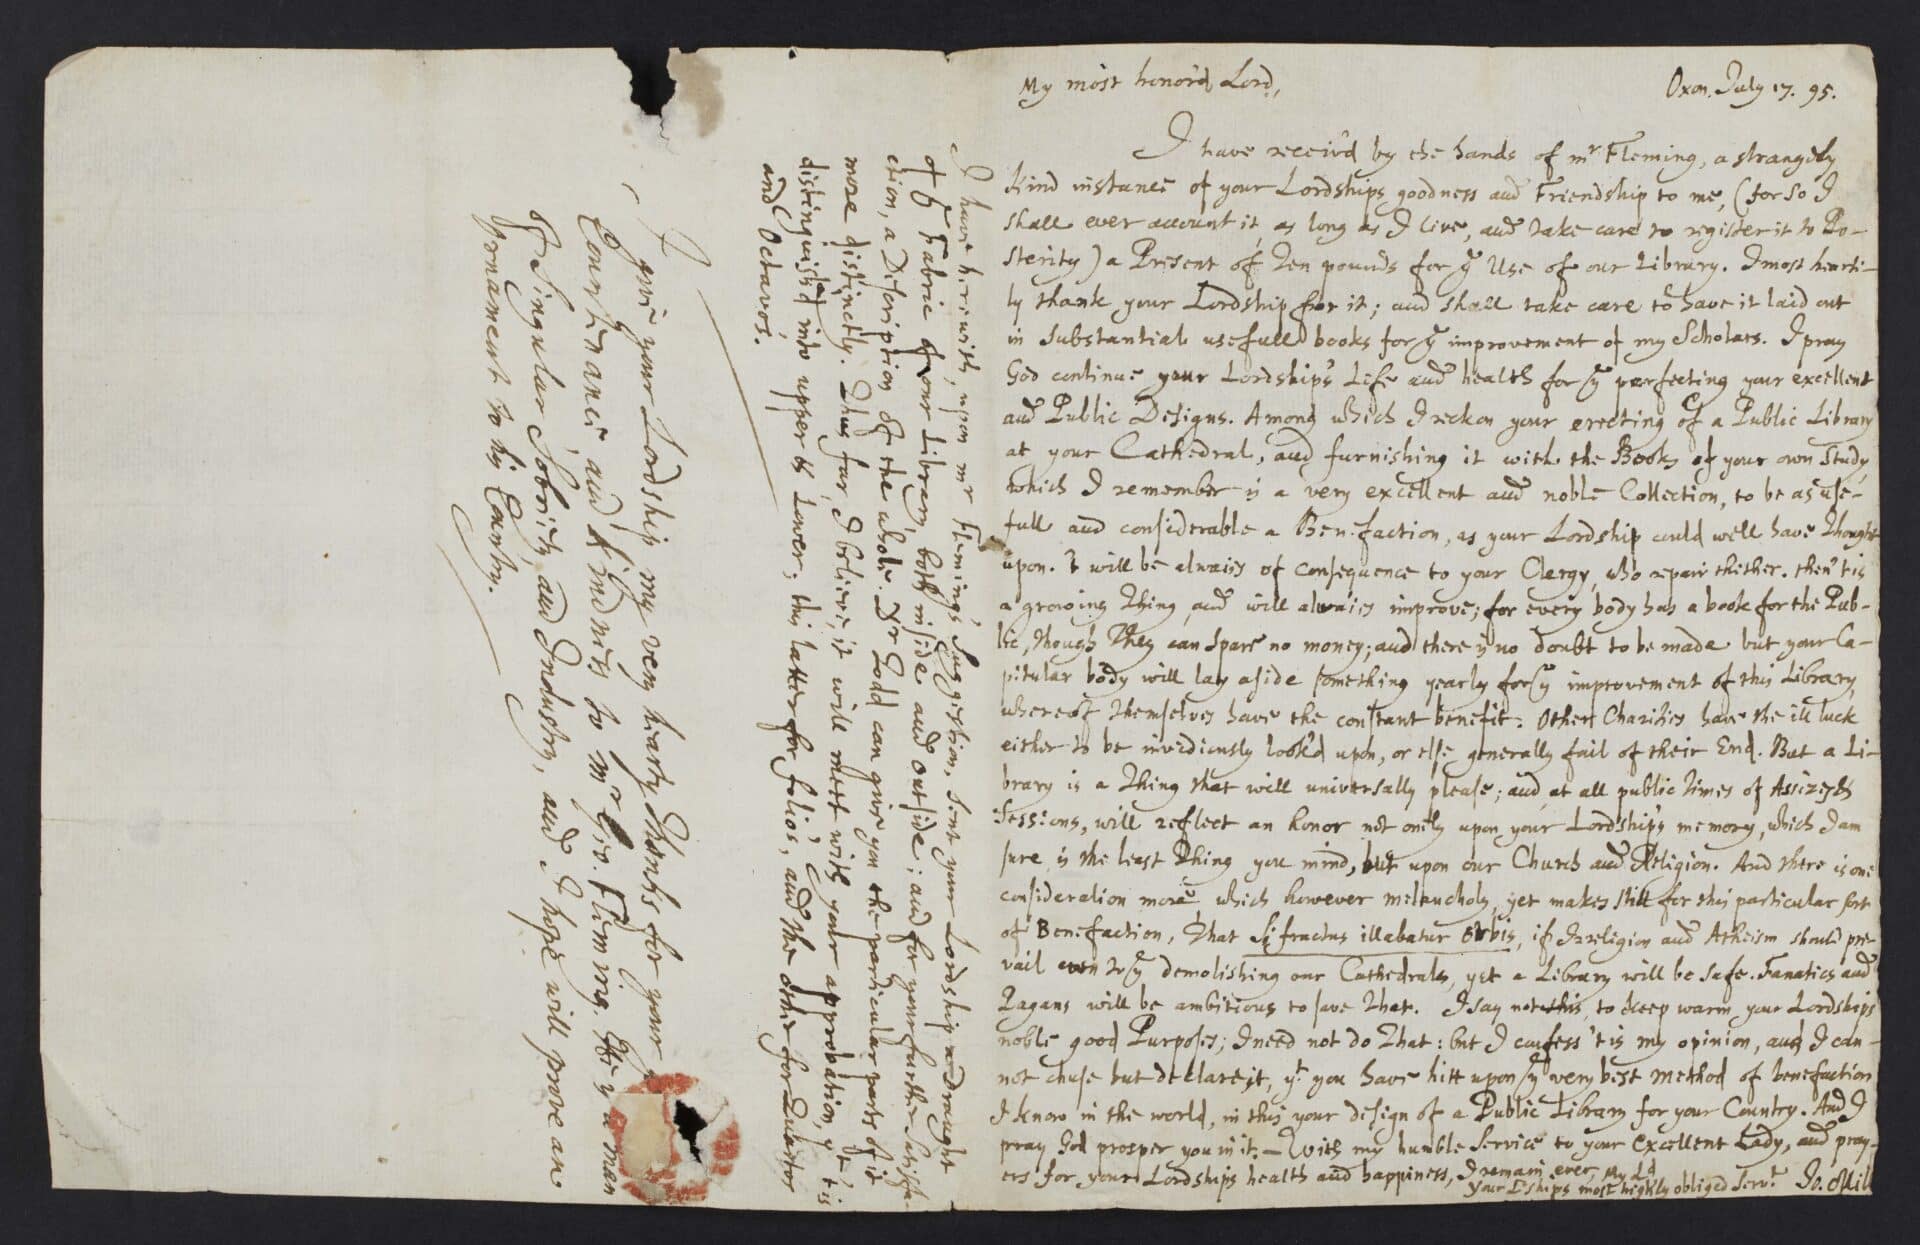 My most honor'd Lord,
Oxon. July 17. 95.
I have receiv'd by the hands of mr Fleming, a strangely
kind instance of your Lordships goodness and Friendship to me, (for so I
shall ever account it, as long as I live, and take care to register it to Po-
sterity) a Present of Ten pounds for ye Use of our Library. I most hearti-
ly thank your Lordship for it; and shall take care to have it laid out
in substantial usefull books for ye improvement of my Scholars. I pray
God continue your Lordship's Life and health for ye perfecting your excellent
and Public Designs. Among which I reckon your erecting of a Public Library
at your Cathedral, and furnishing it with the Books of your own Study,
which I remember is a very excellent and noble Collection, to be as use-
full and considerable a Benefaction, as your Lordship could well have thought
upon. 'T will be alwaies of consequence to your Clergy, who repair thether. then 't is
a growing thing, and will alwaies improve; for every body has a book for the Pub-
lic, though they can spare no money; and there is no doubt to be made but your Ca-
pitular body will lay aside something yearly for ye improvement of this Library,
whereof themselves have the constant benefit. Other Charities have the ill luck
either to be invidiously look'd upon, or else generally fail of their End. But a Li-
brary is a thing that will universally please; and at all public times of Assizes &
Sessions, will reflect an honor not onely upon your Lordship's memory, which I am
sure is the least thing you mind, but upon our Church and Religion. And there is one
consideration more, which however melancholy, yet makes still for this particular sort
of Benefaction, That Si fractus illabatur Orbis, if Irreligion and Atheism should pre-
vail even to ye demolishing our Cathedrals, yet a Library will be safe. Fanatics and
Pagans will be ambitious to save that. I say not this, to keep warm your Lordships
noble good Purposes; I need not do that: but I confess 't is my opinion, and I can-
not chuse but declare it, yt you have hitt upon ye very best method of benefaction
I know in the world, in this your design of a Public Library for your Country. And I
pray God prosper you in it. — With my humble Service to your Excellent Lady, and pray-
ers for your Lordships health and happiness, I remain ever, My Ld
Your Lships most highly obliged Servt Jo. Mill
I have herewith, upon mr Fleming's suggestion, sent your Lordship a Draught
of ye Fabric of our Library, both inside and outside; and for your further Satisfa-
ction, a Description of the whole. Dr Todd can give you the particular parts of it
more distinctly. Thus far, I believe, it will meet with your approbation, yt 't is
distinguish'd into upper & Lower; this latter for folios, and the other for Quartos
and Octavo's.
I give your Lordship my very hearty thanks for your
Countenance, and kindness to mr Geo. Fleming. He is a man
of Singular Sobriety, and Industry, and I hope will prove an
Ornament to his Country.